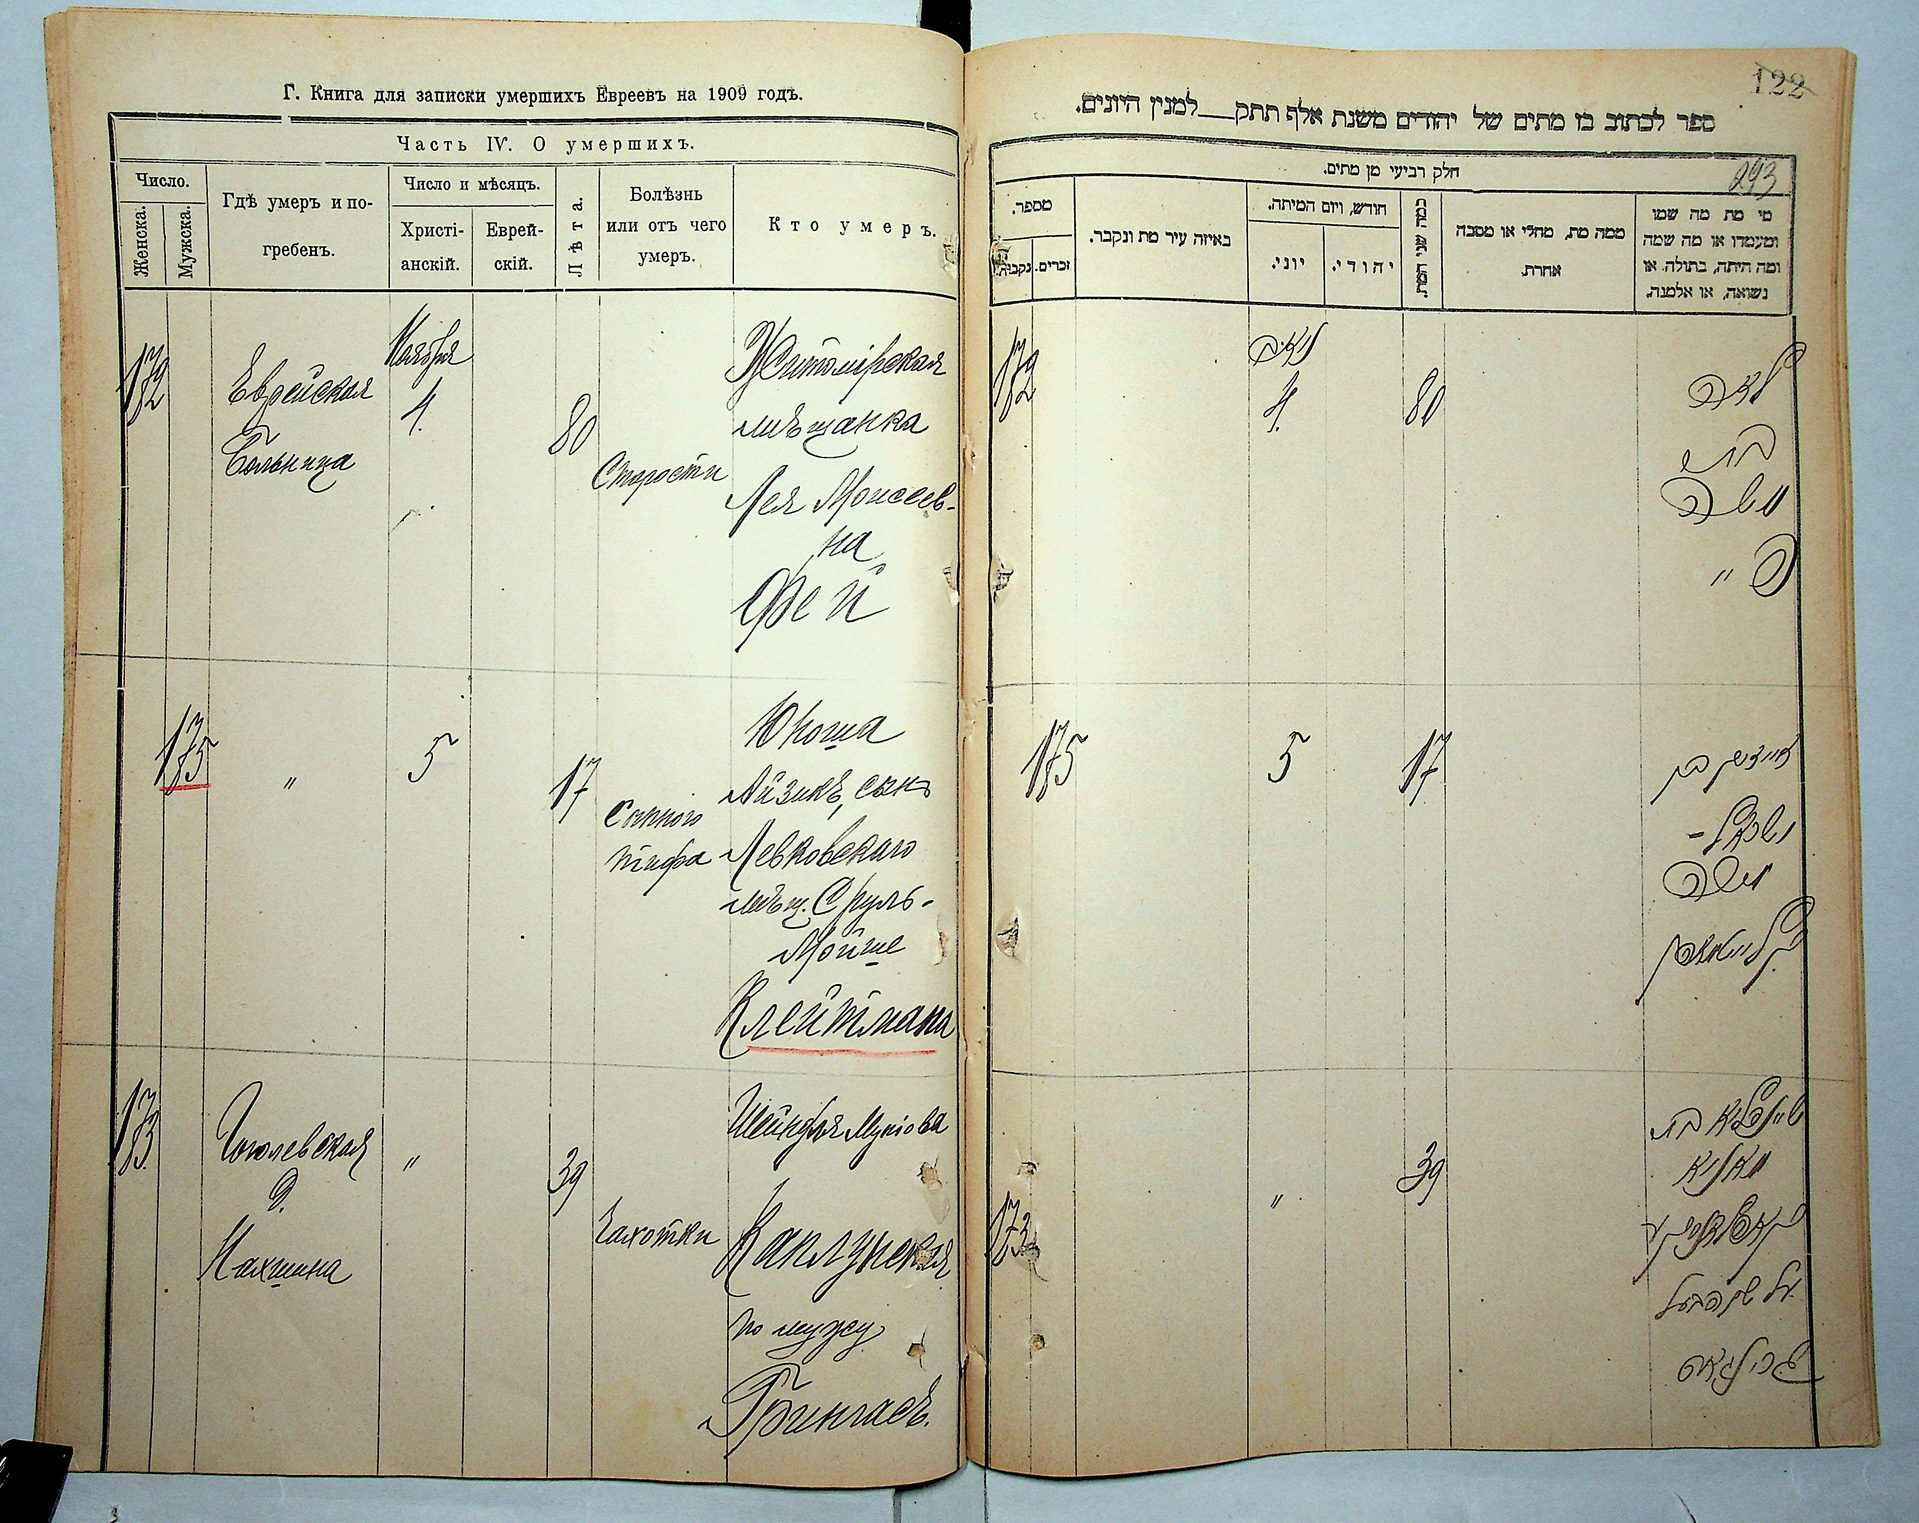 Г. Книга для записки умершихъ Евреевъ на 1909 годъ.
Часть IV. О умершихъ.
Число.
Женска.
Мужска.
Гдѣ умеръ и по-
гребенъ.
Число и мѣсяцъ.
Христі-
анскій.
Еврей-
скій.
Лѣта.
Болѣзнь
или отъ чего
умеръ.
Кто умеръ.
172
Еврейская
Больница
Ноября
4.
80
Старости
Житомірская
мѣщанка
Лея Моисеев-
на
Фей
175
"
5
17
Сыпного
тифа
Юноша
Айзикъ, сынъ
Левковскаго
мѣщ. Сруль-
Мойше
Клейтмана
173.
Гоголевская
д.
"
39
Чахотки
Шейндля
Каплунская
по мужу
122
ספר לכתוב בו מתים של יהודים משנת אלף תתק__למנין היונים.
293
חלק רביעי מן מתים.
מספר.
נקבות.
זכרים.
באיזה עיר מת ונקבר.
חודש, ויום המיתה.
יוני.
יהודי.
כמה שני המת.
ממה מת, מחלי או מסבה
אחרת.
מי מת מה שמו
ומעמדו או מה שמה
ומה היתה, בתולה או
נשואה, או אלמנה.
172
4.
80
לאה
בת
משה
פ"
175
5
17
בן
משה
קלייטמאן
173
"
39
שיינדליא בת